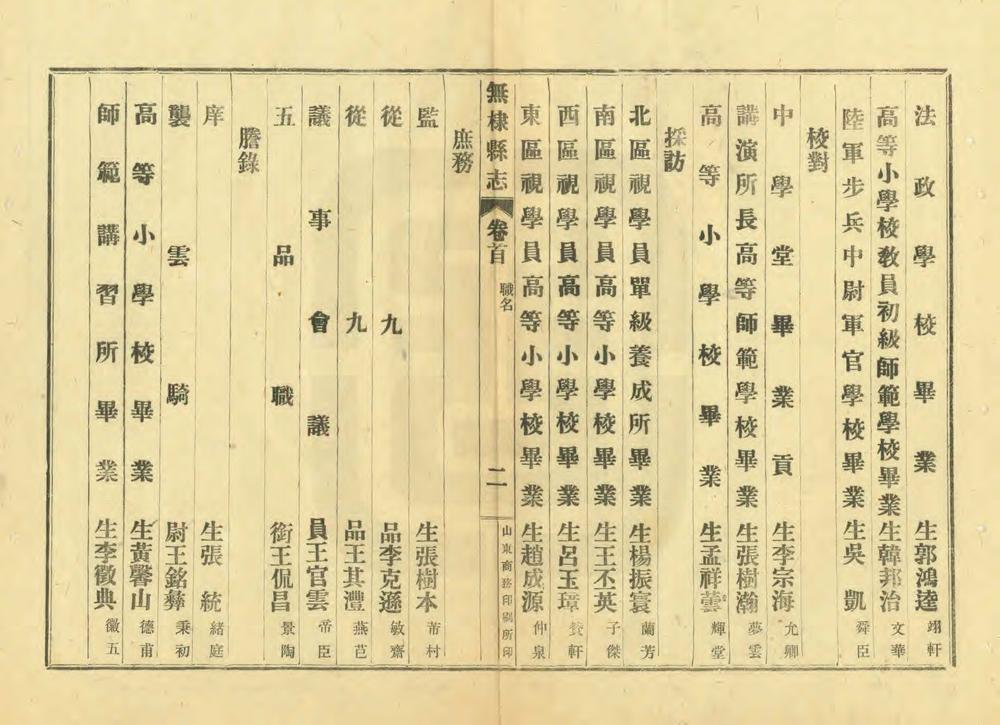 法政學校畢業生郭鴻逵翊軒
高等小學校教員初級師範學校畢業生韓邦治文華
陸軍步兵中尉軍官學校畢業生吳凱舜臣
校對
中學堂畢業貢生李宗海允卿
講演所長高等師範學校畢業生張樹瀚夢雲
高等小學校畢業生孟祥蕓輝堂
採訪
北區視學員單級養成所畢業生楊振寰蘭芳
南區視學員高等小學校畢業生王丕英子傑
西區視學員高等小學校畢業生呂玉璋軒
東區視學員高等小學校畢業生趙成源仲泉
無棣縣志 卷首 職名 二 山東商務印刷所印
庶務
監生張樹本芾村
從九品李克遜敏齋
從九品王其灃燕芑
議事會議員王官雲帝臣
五品職銜王侃昌景陶
謄錄
庠生張統緒庭
襲雲騎尉王銘彝秉初
高等小學校畢業生黃馨山德甫
師範講習所畢業生李徵典徽五